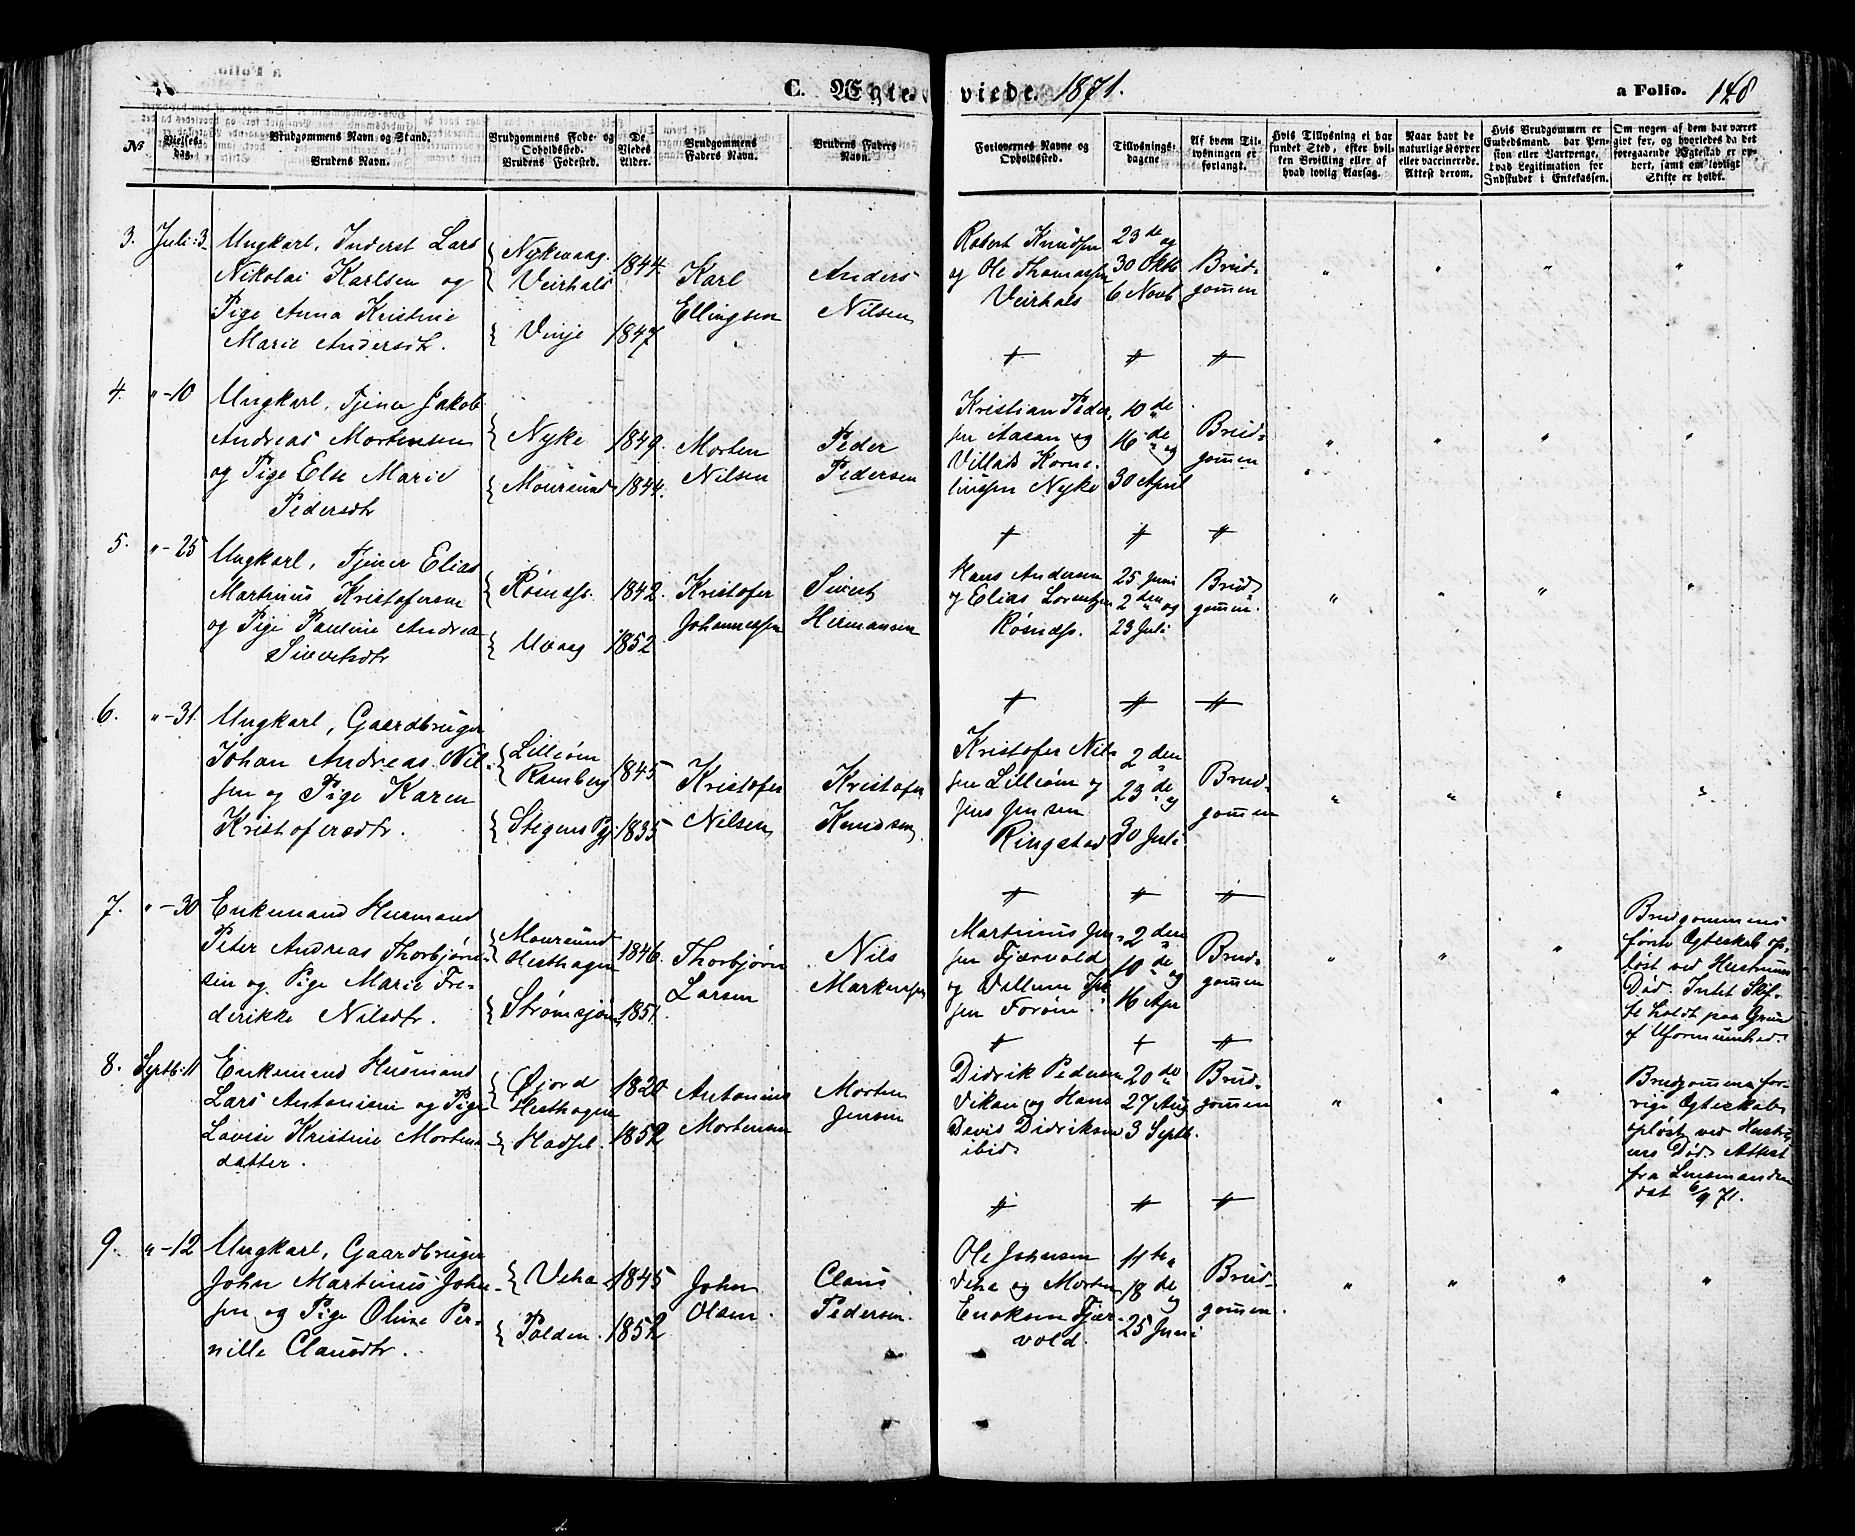 C. Ægte- viede. 1871. a Folio. 148
No
Vielses-dag.
Brudgommens Navn og Stand.
Brudens Navn.
Brudgommens Føde- og Opholdssted.
Brudens Fødested.
De Viedes Alder.
Brudgommens Faders Navn.
Brudens Faders Navn.
Forlovernes Navne og Opholdssted.
Tillysnings-dagene
Af hvem Tillysningen er forlangt.
Hvis Tillysning ei har fundet Sted, efter hvilken Bevilling eller af hvad lovlig Aarsag.
Naar havt de naturlige Kopper eller vaccinerede. Attest derom.
Hvis Brudgommen er Embedsmand, har Pension eller Vartpenge, hvad Legitimation for Indskudet i Enkekassen.
Om nogen af dem har været gift før, og hvorledes da det foregaaende Ægteskab er ophørt, samt om lovligt Skifte er holdt.
3. Juli 3.
Ungkarl, Inderst Lars
Nikolai Karlsen og
Pige Anna Kristine
Marie Andersdtr.
Nykvaag.
Veirhals
Vinje
1844.
1847
Karl
Ellingsen
Anders
Nilsen
Robert Knudsen
og Ole Thomassen
Veirhals
23de og
30 Oktb
6 Novb
Brud-
gommen
4. " -10
Ungkarl, Tjener Jakob
Andreas Mortensen
og Pige Else Marie
Pedersdtr
Nyke
Moursund
1849.
1844.
Morten
Nilsen
Peder
Pedersen
Kristian Peder-
sen Aasan og
Villads Korne-
liussen Nyke
10de
16de og
30 April
Brud-
gommen
5. " -25
Ungkarl, Tjener Elias
Martinus Kristofersen
og Pige Pauline Andrea
Sivertsdtr
Uvaag
1842.
1852
Kristofer
Johannessen
Sivert
Hermansen
Hans Andersen
og Elias Lorentzen
25 Juni
2den og
23 Juli
Brud-
gommen.
6. " -31
Ungkarl, Gaardbruger
Johan Andreas Nil-
sen og Pige Karen
Kristofersdtr.
Lilleøen
Ramberg
Stegens Pgj.
1845
1835
Kristofer
Nilsen
Kristofer
Knudsen
Kristofer Nil-
sen Lilleøen og
Jens Jensen
Ringstad
2den
23de og
30 Juli
Brud-
gommen
7. " -30
Enkemand Husmand
Peter Andreas Thorbjørn-
sen og Pige Marie Fre-
derikke Nilsdtr.
Moursund
Hesthagen
Strømsjøen
1846.
1851
Thorbjørn
Larsen
Nils
Markussen
Martinus Jen-
sen Fjærvold
og Villum
sen Forøen
2den
10de og
16 Apr
Brud-
gommen
Brudgommens
første Ægteskab op-
løst ved Hustruens
Død. Intet Skif-
te holdt paa Grund
af Uformuenhed.
8. Septb: 11
Enkemand Husmand
Lars Antonsen og Pige
Lovise Kristine Mortens-
datter.
Øjord
Hesthagen
Hadsel.
1820
1852
Antonius
Mortensen
Morten
Jensen
Didrik Pedersen
Vikan og Hans
Devis Didriksen
ibid
20de
27 Aug
3 Septb.
Brud-
gommen
Brudgommens for-
rige Ægteskab
opløst ved Hustru-
ens Død. Attest
fra Lensmanden
dat 6/9 71.
9. " -12
Ungkarl, Gaardbruger
John Martinus John-
sen og Pige Oline Per-
nille Clausdtr.
Veha
Polden.
1845
1852
John
Olsen.
Claus
Pedersen.
Ole Johnsen
Veha og Morten
Enoksen Fjær-
vold.
11te
18de og
25 Juni
Brud-
gommen.